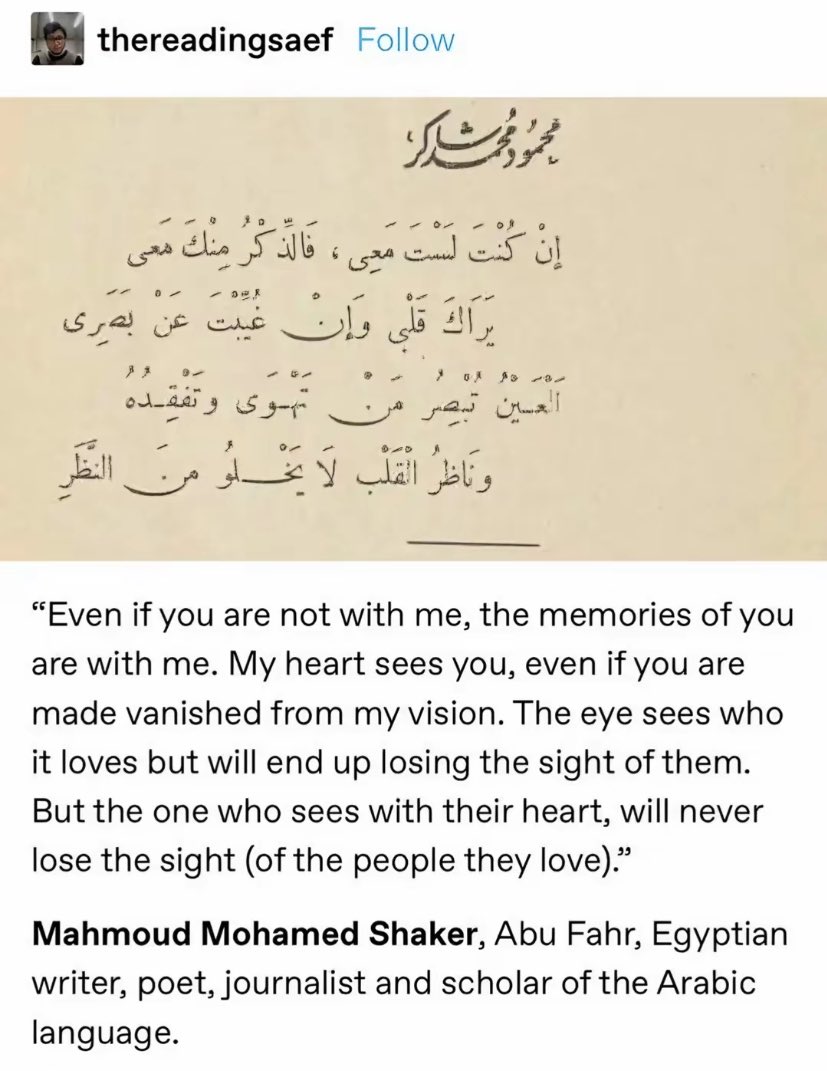 thereadingsaef Follow
محمود محمد شاكر
إِنْ كُنْتَ لَسْتَ مَعِى ، فَالذِّكْرُ مِنْكَ مَعِى
يَرَاكَ قَلْبِى وَإِنْ غُيِّبْتَ عَنْ بَصَرِى
الْعَيْنُ تُبْصِرُ مَنْ تَهْوَى وَتَفْقِدُهُ
وَنَاظِرُ الْقَلْبِ لَا يَخْلُو مِنَ النَّظَرِ
“Even if you are not with me, the memories of you
are with me. My heart sees you, even if you are
made vanished from my vision. The eye sees who
it loves but will end up losing the sight of them.
But the one who sees with their heart, will never
lose the sight (of the people they love).”
Mahmoud Mohamed Shaker, Abu Fahr, Egyptian
writer, poet, journalist and scholar of the Arabic
language.